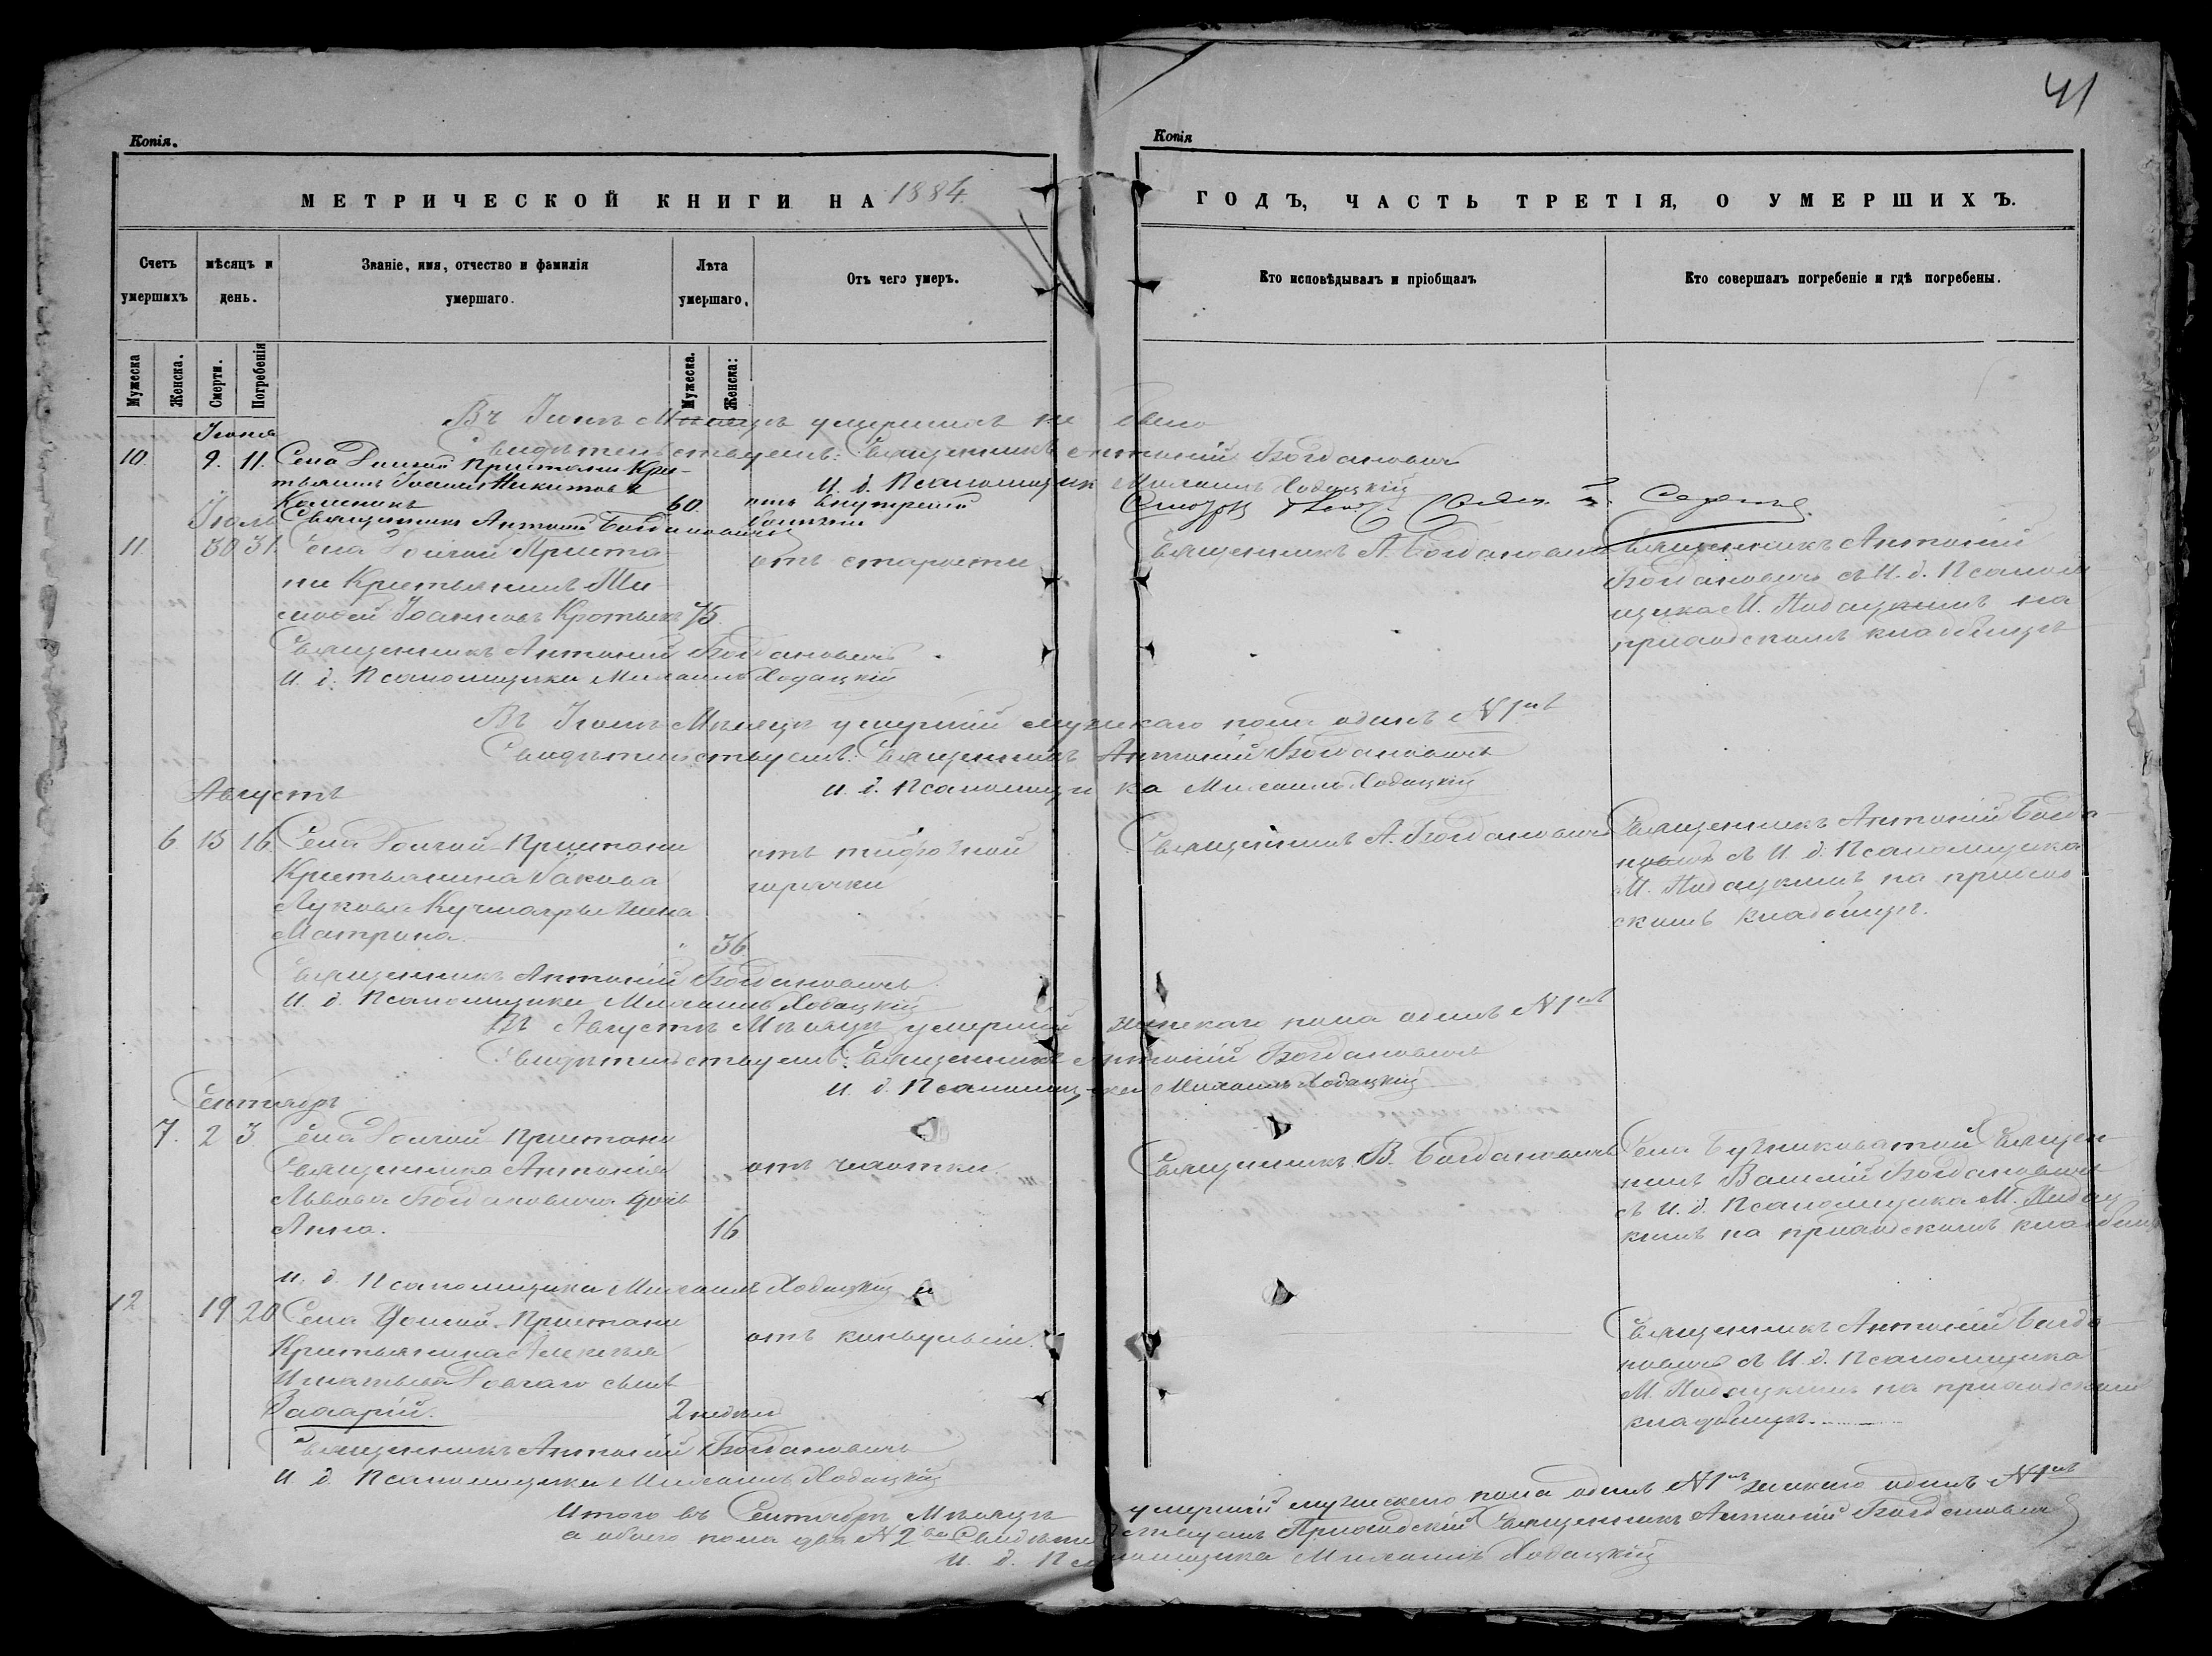 41
Копія.
МЕТРИЧЕСКОЙ КНИГИ НА 1884
Счетъ умершихъ
мѣсяцъ и день.
Званіе, имя, отчество и фамилія умершаго.
Лѣта умершаго.
Отъ чего умеръ.
Мужеска
Женска.
Смерти.
Погребенія
Мужеска.
Женска:
Копія
ГОДЪ, ЧАСТЬ ТРЕТІЯ, О УМЕРШИХЪ.
Кто исповѣдывалъ и пріобщалъ
Кто совершалъ погребеніе и гдѣ погребены.
Въ Іюнѣ Мѣсяцѣ умершихъ не было
Свидѣтельствуемъ: Священникъ Антоній Богдановичъ
И. д. Псаломщика Михаилъ Ходацкій
Іюня
10. 9. 11. Села Долгой Пристани Кре-
стьянинъ Іоаннъ Никитовъ
60. отъ внутреней
болѣзни
Священникъ Антоній Богдановичъ
Іюль
11. 30 31. Села Долгой Приста
ни Крестьянинъ Ти
мофей Іоанновъ 75.
отъ старости
Священникъ А. Богдановичъ
Священникъ Антоній
Богдановичъ съ И. д. Псалом
щика М. Ходацкимъ на
приходскомъ кладбищѣ
Священникъ Антоній Богдановичъ
И. д. Псаломщика Михаилъ Ходацкій
Въ Іюлѣ Мѣсяцѣ умершій мужскаго пола одинъ №1нъ
Свидѣтельствуемъ: Священникъ Антоній Богдановичъ
И. д. Псаломщика Михаилъ Ходацкій
Августъ
6 15 16 Села Долгой-Пристани
Крестьянина Якова
Лукова жена
Матрона. 36
отъ тифозной
горячки
Священникъ А. Богдановичъ
Священникъ Антоній Богда-
новичъ съ И. д. Псаломщика
М. Ходацкимъ на приход
скомъ кладбищѣ.
Священникъ Антоній Богдановичъ
И. д. Псаломщика Михаилъ Ходацкій
Въ Августѣ Мѣсяцѣ умершій женскаго пола одинъ №1нъ
Свидѣтельствуемъ: Священникъ Антоній Богдановичъ
И. д. Псаломщика Михаилъ Ходацкій
Сентябрь
7. 2 3 Села Долгой-Пристани
Священника Антонія
Львова Богдановича дочь
Анна. 16
отъ чахотки.
Священникъ В. Богдановичъ
Села Священ-
никъ Василій Богдановичъ
съ И. д. Псаломщика М. Ходац
кимъ на приходскомъ кладбищѣ
И. д. Псаломщика Михаилъ Ходацкій
12 19 20 Села Долгой-Пристани
Крестьянина Алексѣя
Игнатьева Довгаго сынъ
Захарій. 2 недѣли
отъ конвульсіи.
Священникъ Антоній Богда-
новичъ съ И. д. Псаломщика
М. Ходацкимъ на приходскомъ
кладбищѣ.
Священникъ Антоній Богдановичъ
И. д. Псаломщика Михаилъ Ходацкій
Итого въ Сентябрѣ Мѣсяцѣ умершій мужескаго пола одинъ №1нъ женскаго одинъ №1нъ
а обоего пола два №2ва Свидѣтельствуемъ Приходскій Священникъ Антоній Богдановичъ
И. д. Псаломщика Михаилъ Ходацкій